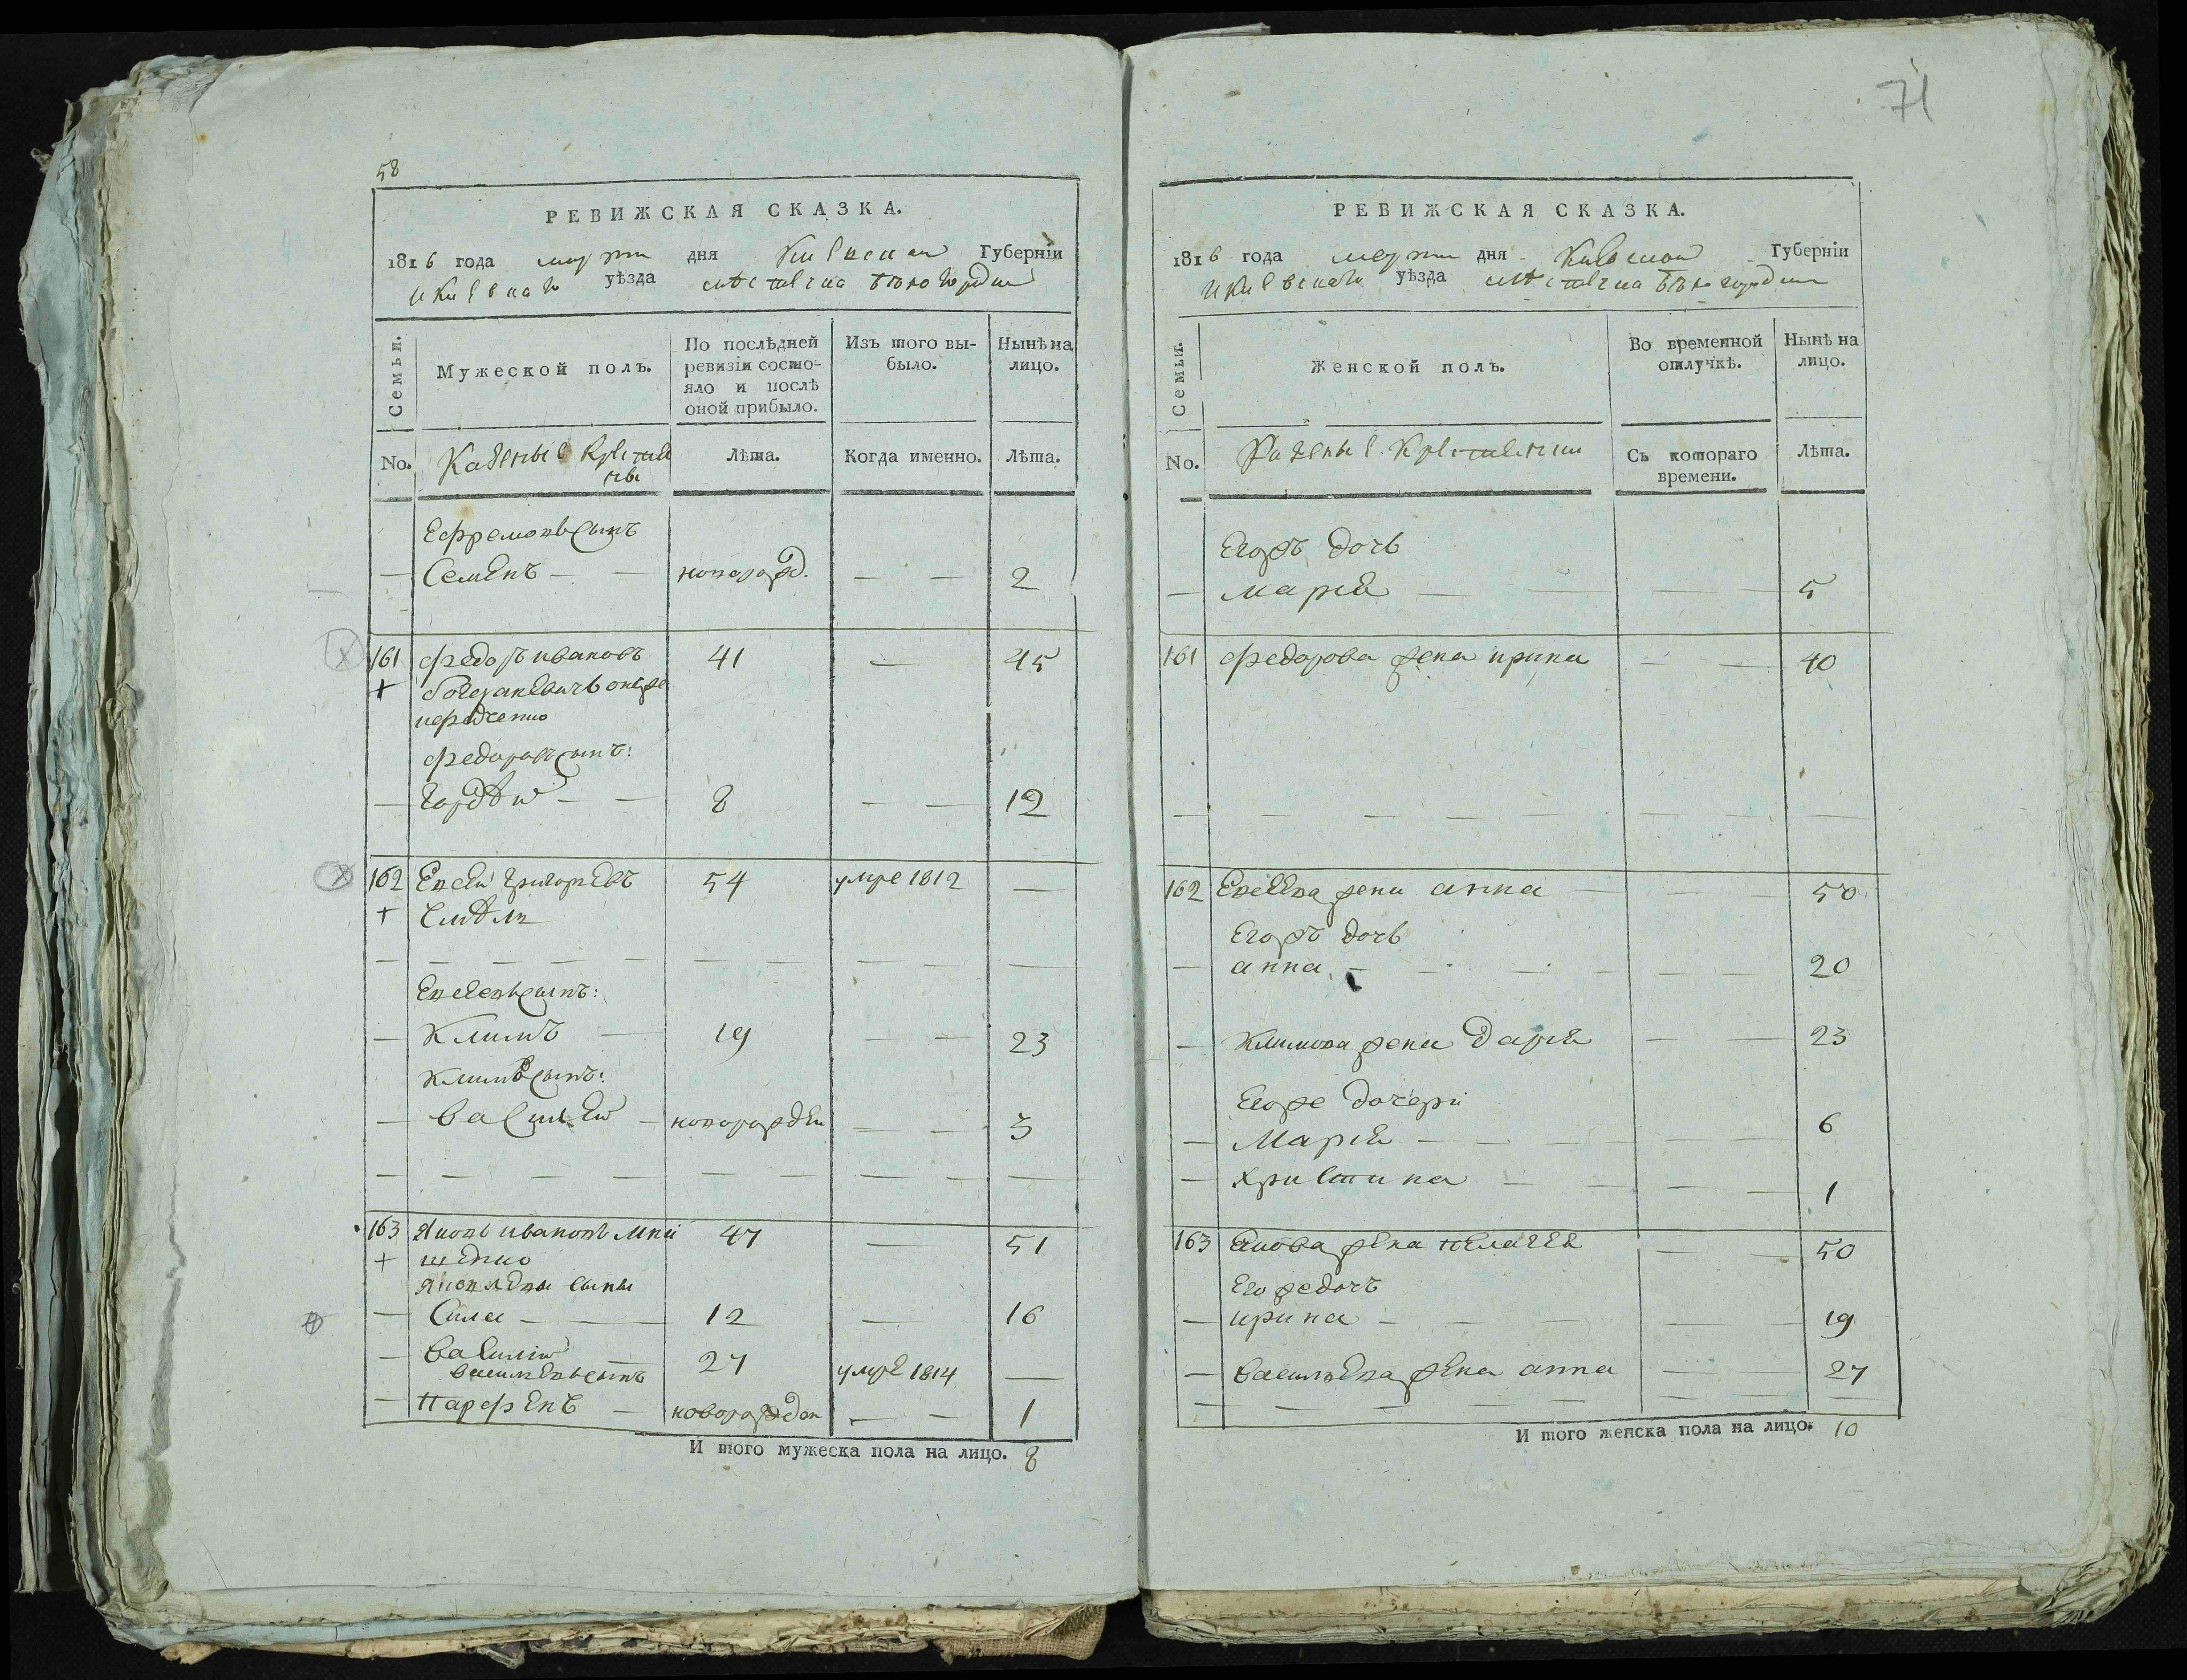 58
РЕВИЖСКАЯ СКАЗКА.
1816 года марта дня Киевской Губерніи
и Киевскаго уѣзда мѣстечка Бѣлогородки
Семьи.
Мужеской полъ.
По послѣдней ревизіи состояло и послѣ оной прибыло.
Изъ того выбыло.
Нынѣ на лицо.
No.
Казенные Крестьяне
Лѣта.
Когда именно.
Лѣта.
Ефремовъ сынъ
— Семенъ — — новорожд. — — 2
161 Федоръ Ивановъ 41 — 45
+
Федоровъ сынъ:
— Гордѣй — — 8 — — 12
162 Евсей Григорьевъ 54 умре 1812 —
+
Евсеевъ сынъ:
— Климъ — 19 — — 23
Климовъ сынъ:
— Василей — новорожден — — 3
163 Яковъ Ивановъ 47 — 51
+
Яковлевы сыны
— Сила — 12 — 16
— Василій 27 умре 1814 —
Васильевъ сынъ
— Парфенъ — новорожден — — 1
И того мужеска пола на лицо. 8
71
РЕВИЖСКАЯ СКАЗКА.
1816 года марта дня Киевской Губерніи
и Киевскаго уѣзда мѣстечка Бѣлогородки
Семьи.
Женской полъ.
Во временной отлучкѣ.
Нынѣ на лицо.
No.
Казеные Крестьянки
Съ котораго времени.
Лѣта.
Егожъ дочь
— Марья — — — — 5
161 Федорова жена Ирина — — 40
162 Евсеева жена Анна — — — 50
Егожъ дочь
— Анна — — — — — — 20
— Климова жена Дарья — — 23
Егоже дочери
— Марья — — — — — 6
— Христина — — — — 1
163 Якова жена Пелагея — — 50
Егоже дочъ
— Ирина — — — — — 19
— Васильева жена Анна — — 27
И того женска пола на лицо. 10